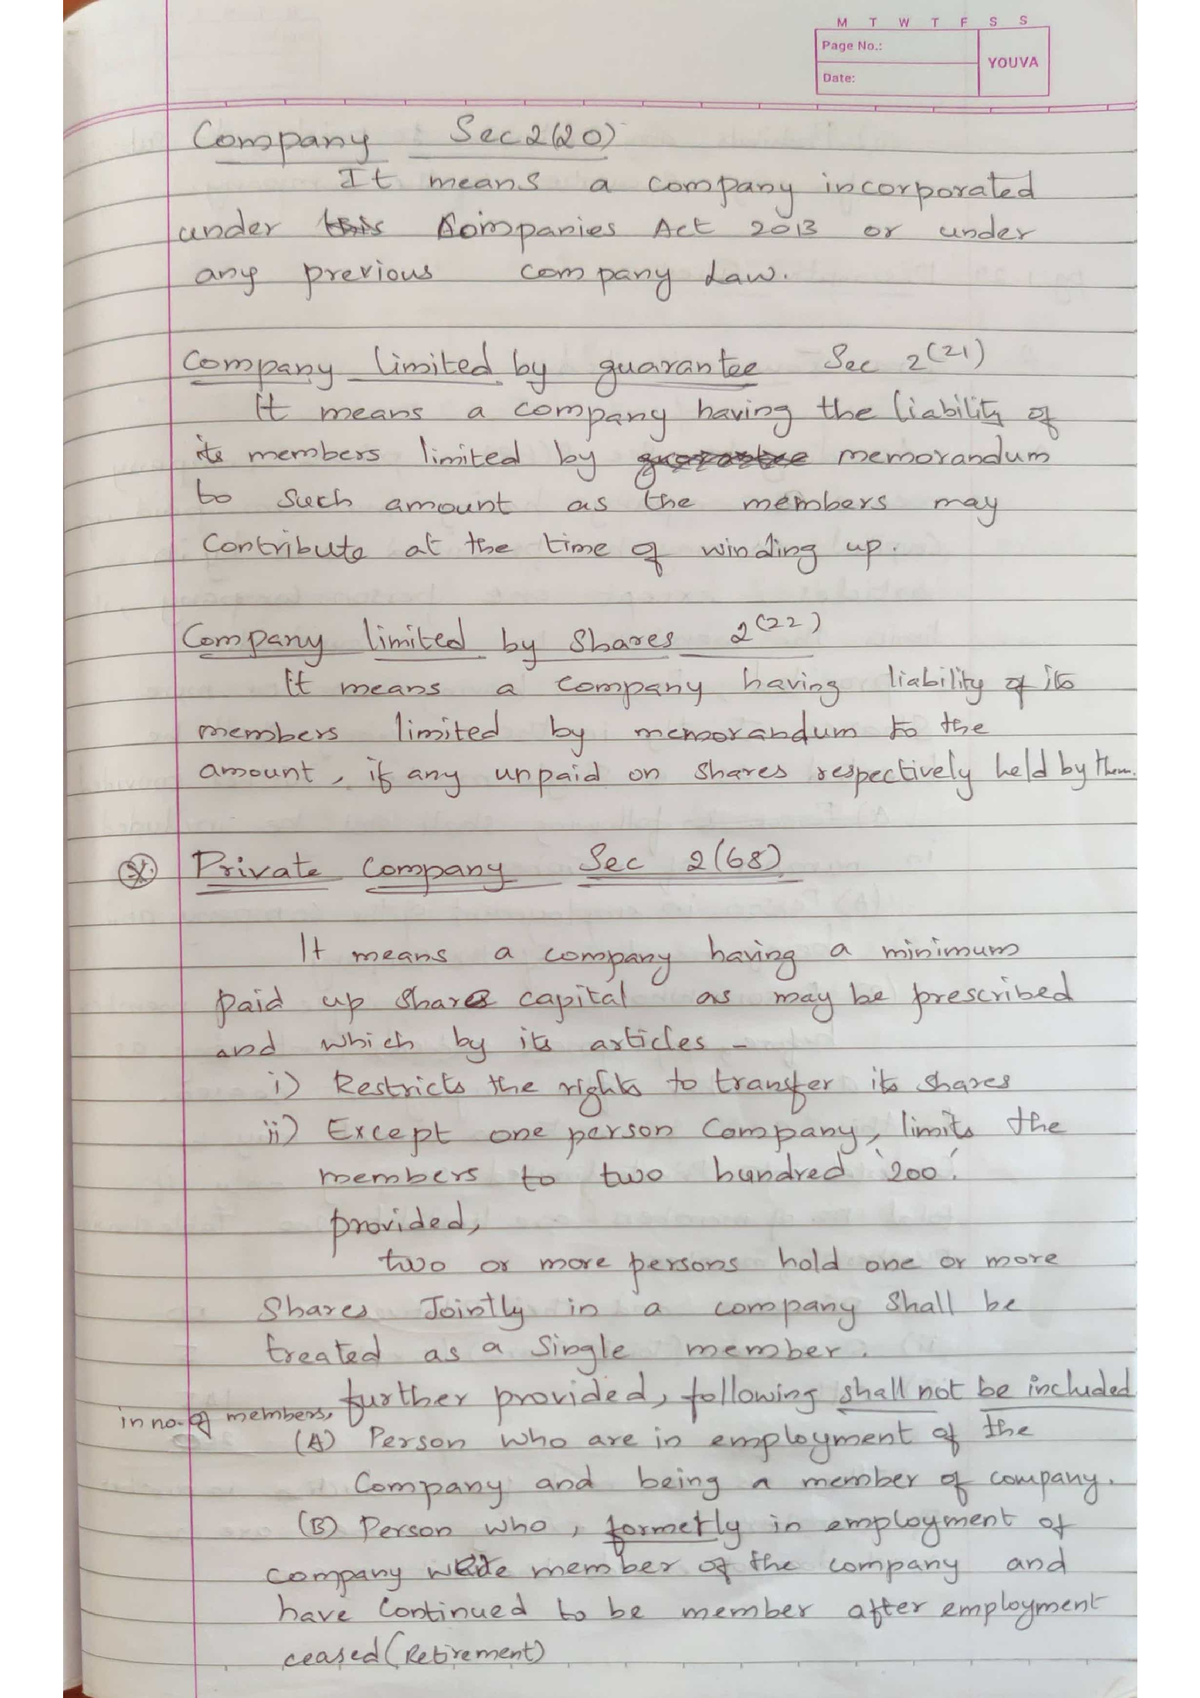 M T W T F S S
Page No.:
YOUVA
Date:
Company Sec 2(20)
It means a company incorporated
under this Companies Act 2013 or under
any previous company Law.
Company limited by guarantee Sec 2(21)
It means a company having the liability of
its members limited by guarantee memorandum
to such amount as the members may
Contribute at the time of winding up.
Company limited by Shares 2(22)
It means a company having liability of its
members limited by memorandum to the
amount, if any unpaid on shares respectively held by them.
Private Company Sec 2(68)
It means a company having a minimum
paid up share capital as may be prescribed
and which by its articles -
i) Restricts the rights to transfer its shares
ii) Except one person Company, limits the
members to two hundred '200'.
provided,
two or more persons hold one or more
Shares Jointly in a company Shall be
treated as a Single member.
further provided, following shall not be included
in no. of members,
(A) Person who are in employment of the
Company and being a member of company.
(B) Person who, formerly in employment of
company were member of the company and
have Continued to be member after employment
ceased (Retirement)